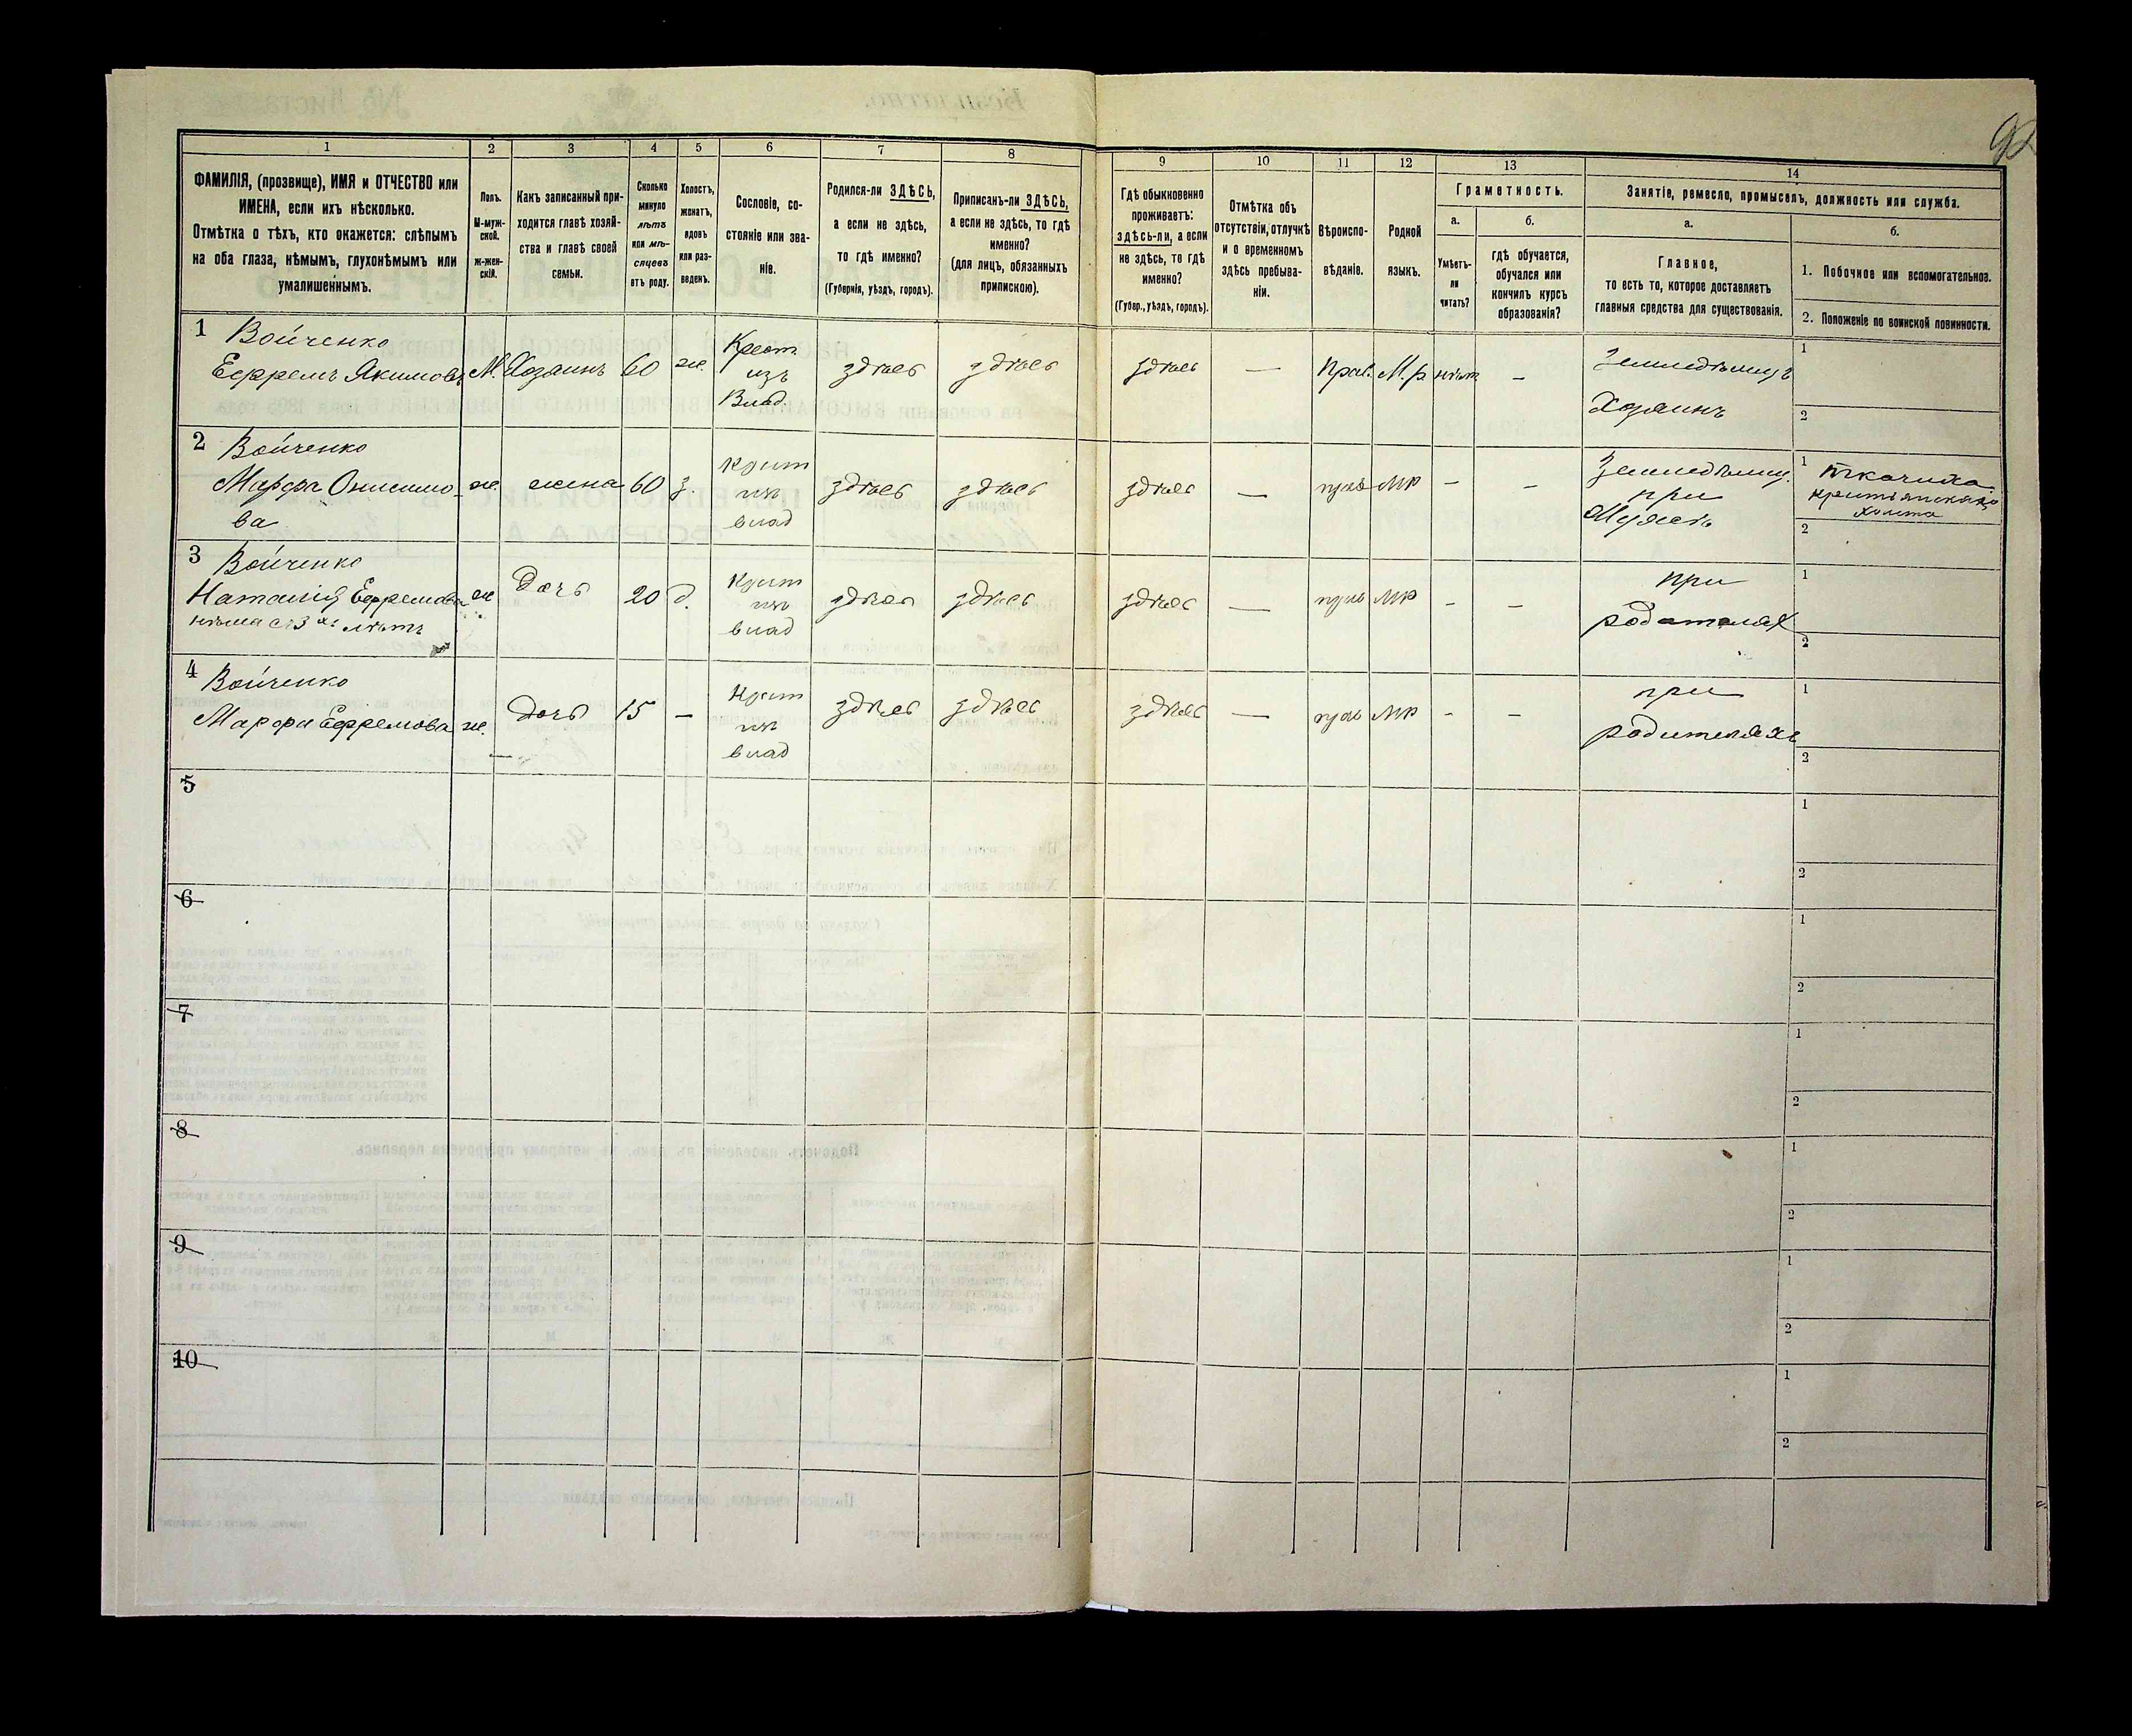 92
1
2
3
4
5
6
7
8
9
10
11
12
13
14
ФАМИЛІЯ, (прозвище), ИМЯ и ОТЧЕСТВО или
ИМЕНА, если ихъ нѣсколько.
Отмѣтка о тѣхъ, кто окажется: слѣпымъ
на оба глаза, нѣмымъ, глухонѣмымъ или
умалишеннымъ.
Полъ.
М-муж-
ской.
ж-жен-
скій.
Какъ записанный при-
ходится главѣ хозяй-
ства и главѣ своей
семьи.
Сколько
минуло
лѣтъ
или мѣ-
сяцевъ
отъ роду.
Холостъ,
женатъ,
вдовъ
или раз-
веденъ.
Сословіе, со-
стояніе или зва-
ніе.
Родился-ли ЗДѢСЬ,
а если не здѣсь,
то гдѣ именно?
(Губернія, уѣздъ, городъ).
Приписанъ-ли ЗДѢСЬ,
а если не здѣсь, то гдѣ
именно?
(для лицъ, обязанныхъ
припискою).
Гдѣ обыкновенно
проживаетъ:
здѣсь-ли, а если
не здѣсь, то гдѣ
именно?
(Губер., уѣздъ, городъ).
Отмѣтка объ
отсутствіи, отлучкѣ
и о временномъ
здѣсь пребыва-
ніи.
Вѣроиспо-
вѣданіе.
Родной
языкъ.
Грамотность.
а.
Умѣетъ-
ли
читать?
б.
гдѣ обучается,
обучался или
кончилъ курсъ
образованія?
Занятіе, ремесло, промыселъ, должность или служба.
а.
Главное,
то есть то, которое доставляетъ
главныя средства для существованія.
б.
1. Побочное или вспомогательное.
2. Положеніе по воинской повинности.
1 Войченко
Ефремъ Якимовъ М. Хозяинъ 60 ж. Крест. изъ Влад. здѣсь здѣсь здѣсь — Прав. М.р. нѣт — Земледѣлецъ Хозяинъ 1 2
2 Войченко
Марфа Онисимо-
ва ж. жена 60 з. крест из влад здѣсь здѣсь здѣсь — прав МР — — Земледѣлиц. при Мужѣ 1 ткачиха крестьянскаго холста 2
3 Войченко
Наталія Ефремова ж Дочь 20 д. крест из влад здѣсь здѣсь здѣсь — прав МР — — при родителях 1 2
нѣма с 3хъ лѣтъ
4 Войченко
Марфа Ефремова ж. Дочь 15 — крест из влад здѣсь здѣсь здѣсь — прав МР — — при родителяхъ 1 2
5 1 2
6 1 2
7 1 2
8 1 2
9 1 2
10 1 2